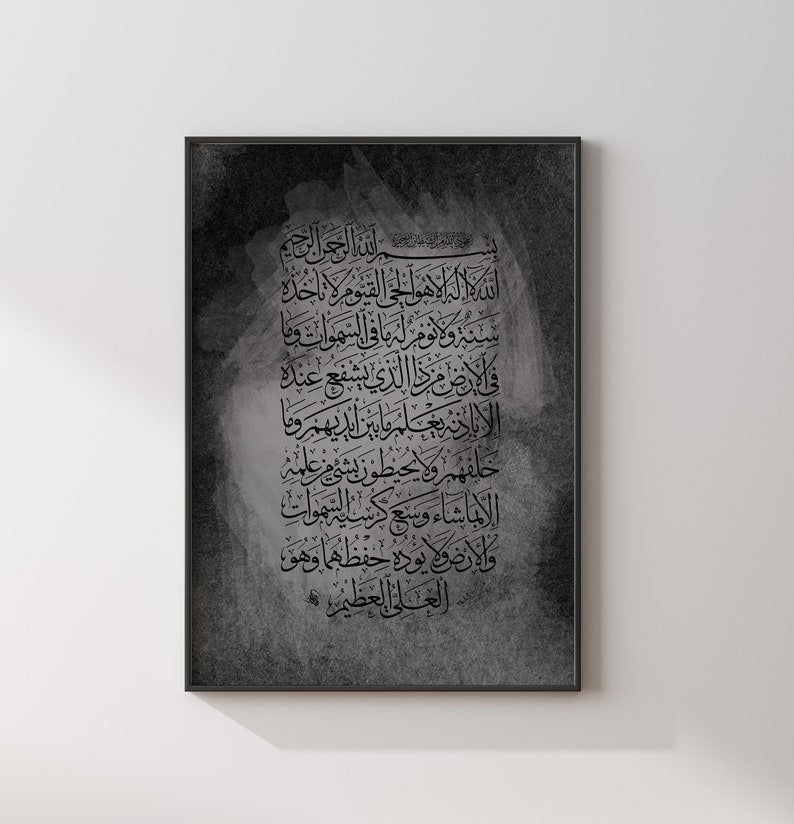 أعوذ بالله من الشيطان الرجيم
بسم الله الرحمن الرحيم
الله لا إله إلا هو الحي القيوم لا تأخذه
سنة ولا نوم له ما في السموات وما
في الأرض من ذا الذي يشفع عنده
إلا بإذنه يعلم ما بين أيديهم وما
خلفهم ولا يحيطون بشيء من علمه
إلا بما شاء وسع كرسيه السموات
والأرض ولا يؤده حفظهما وهو
العلي العظيم